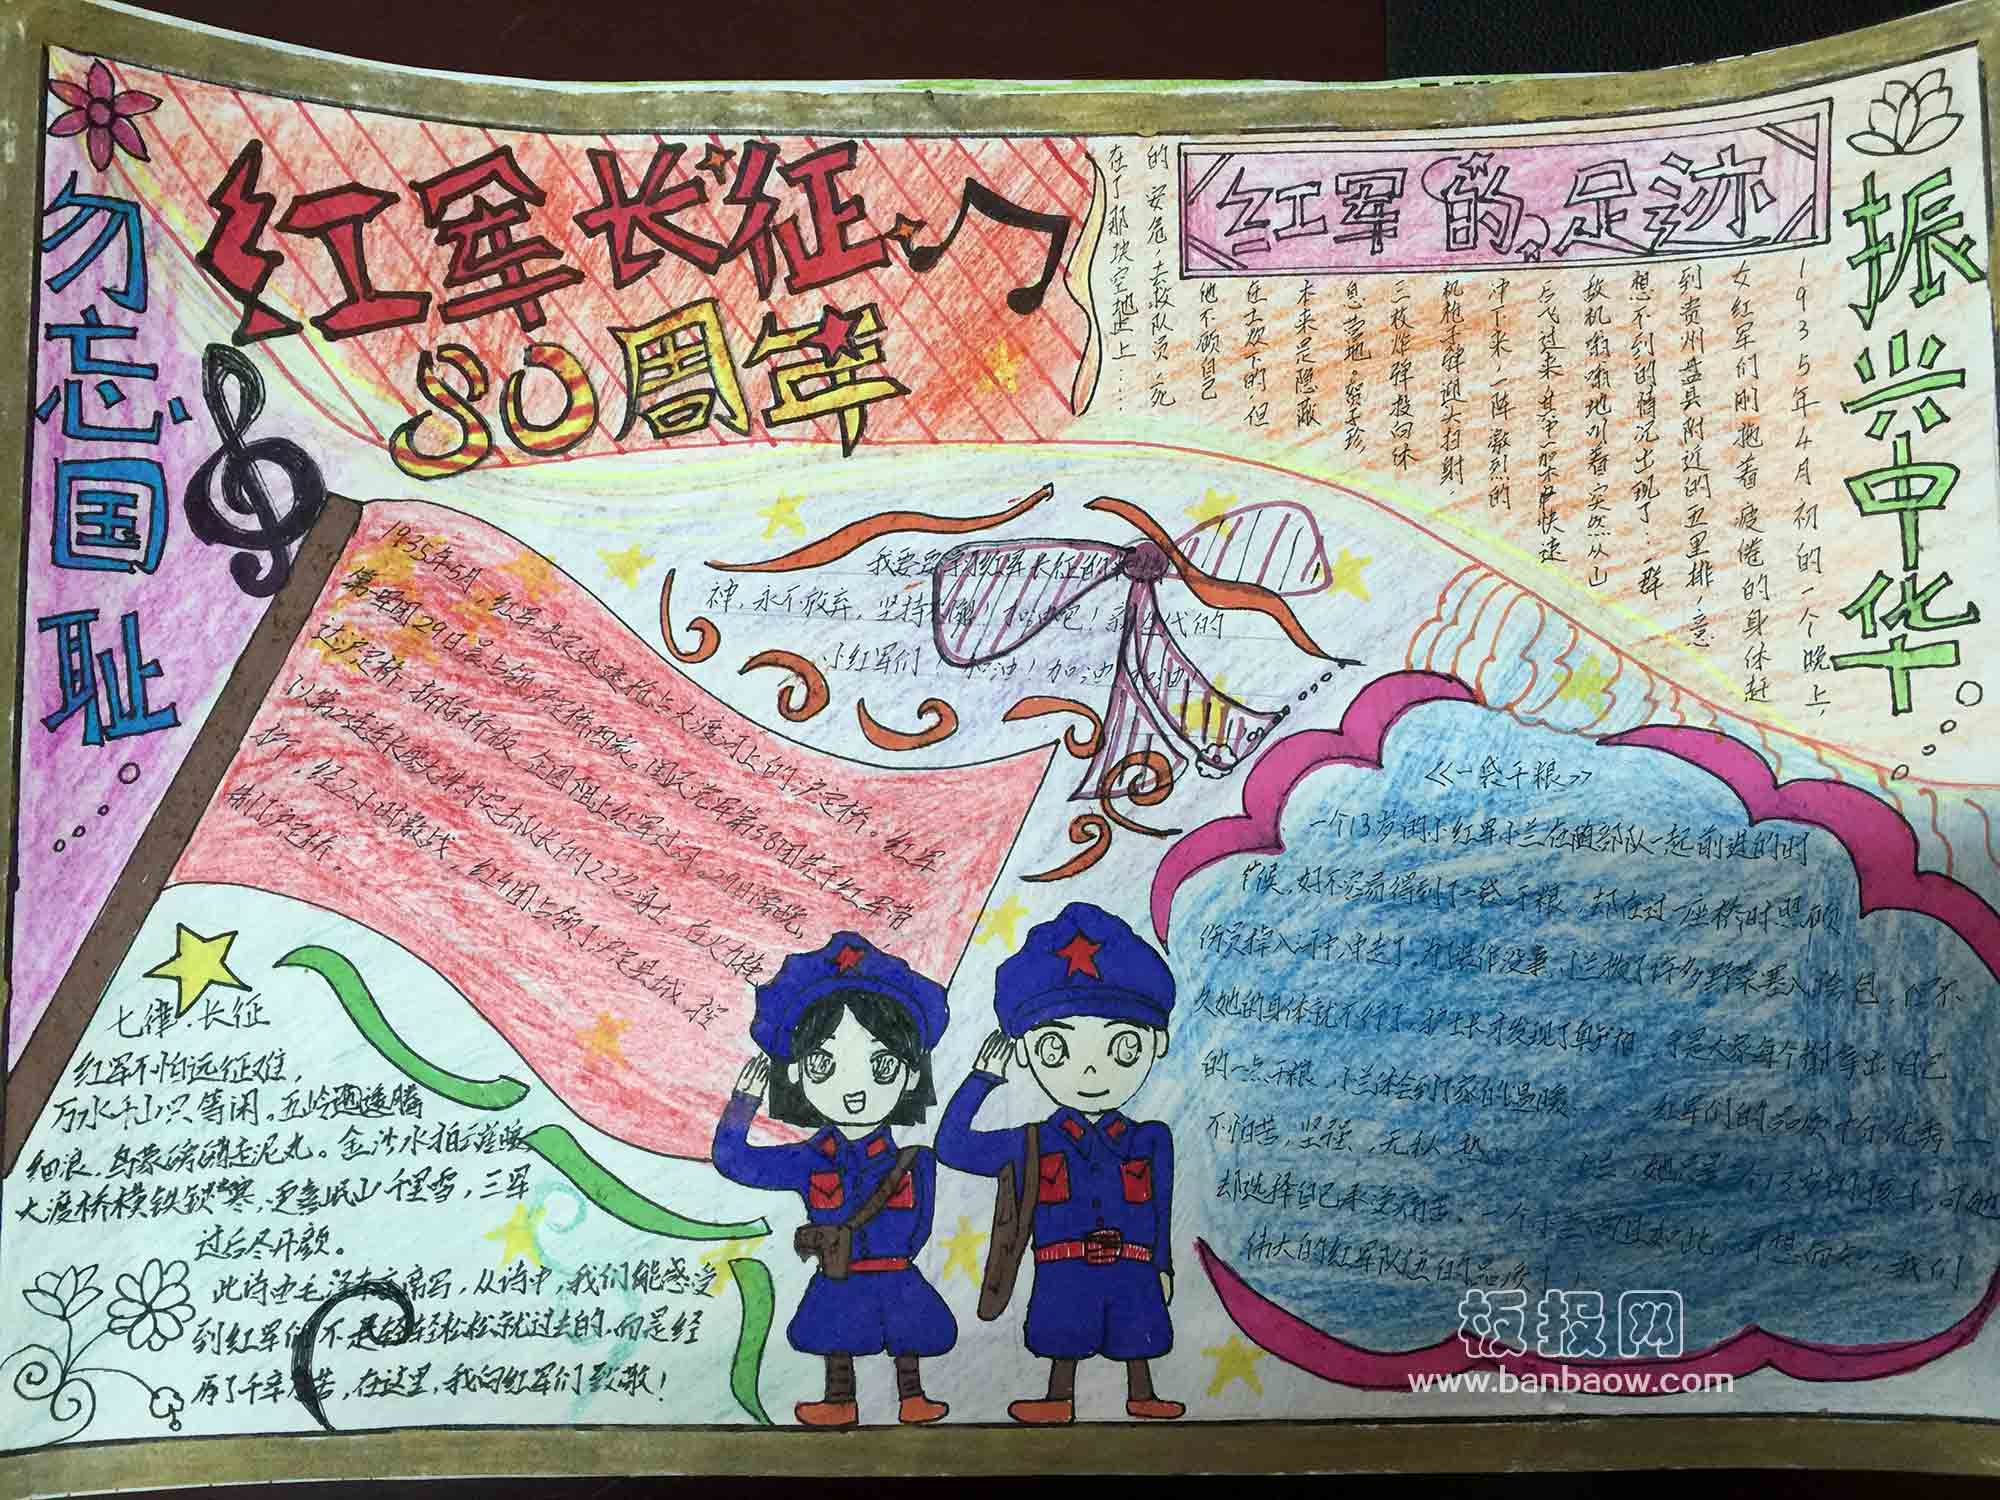 勿忘国耻
红军长征
80周年
红军的足迹
振兴中华
1935年4月初的一个晚上，
女红军们刚拖着疲倦的身体赶
到贵州盘县附近的五里排，意
想不到的情况出现了：一群
敌机嗡嗡嗡地叫着突然从山
后飞过来，其中一架快速
冲下来，一阵激烈的
机枪子弹迎头扫射，
三枚炸弹投向休
息营地。贺子珍
本来是隐蔽
在土坎下的，但
他不顾自己
的安危，去救队员，死
在了那块空地上……
神，永不放弃，坚持不懈！加油吧！新生代的
小红军们！加油！加油！加油！
1935年5月，红军决定迅速抢占大渡河上的泸定桥。红军
第四团29日晨占领泸定桥西岸。国民党军第38团先于红军背
达泸定桥，拆除桥板，企图阻止红军过河。29日
以第2连连长廖大珠为突击队长的22名勇士，在火力掩
护下，经2小时激战，红4团占领了泸定县城，控
制了泸定桥。
七律·长征
红军不怕远征难，
万水千山只等闲。五岭逶迤腾
细浪，乌蒙磅礴走泥丸。金沙水拍云崖暖
大渡桥横铁锁寒，更喜岷山千里雪，三军
过后尽开颜。
此诗由毛泽东主席写，从诗中，我们能感受
到红军们不是轻轻松松就过去的，而是经
历了千辛万苦，在这里，我向红军们致敬！
《一袋干粮》
一个13岁的小红军小兰在随部队一起前进的时
候，好不容易得到了一袋干粮，却在过一座桥时照顾
伤员掉入河中冲走了，为了装作没事，小兰拔了许多野菜塞入挎包，但不
久她的身体就不行了，护士长才发现了真相，于是大家每个都拿出自己
的一点干粮，小兰体会到了家的温暖 红军们的品质十分优秀
不怕苦，坚强，无私 她只是个13岁的孩子，可她
却选择自己承受痛苦，一个小兰尚且如此，可想而知，我们
伟大的红军队伍的品质！
板报网
www.banbaow.com